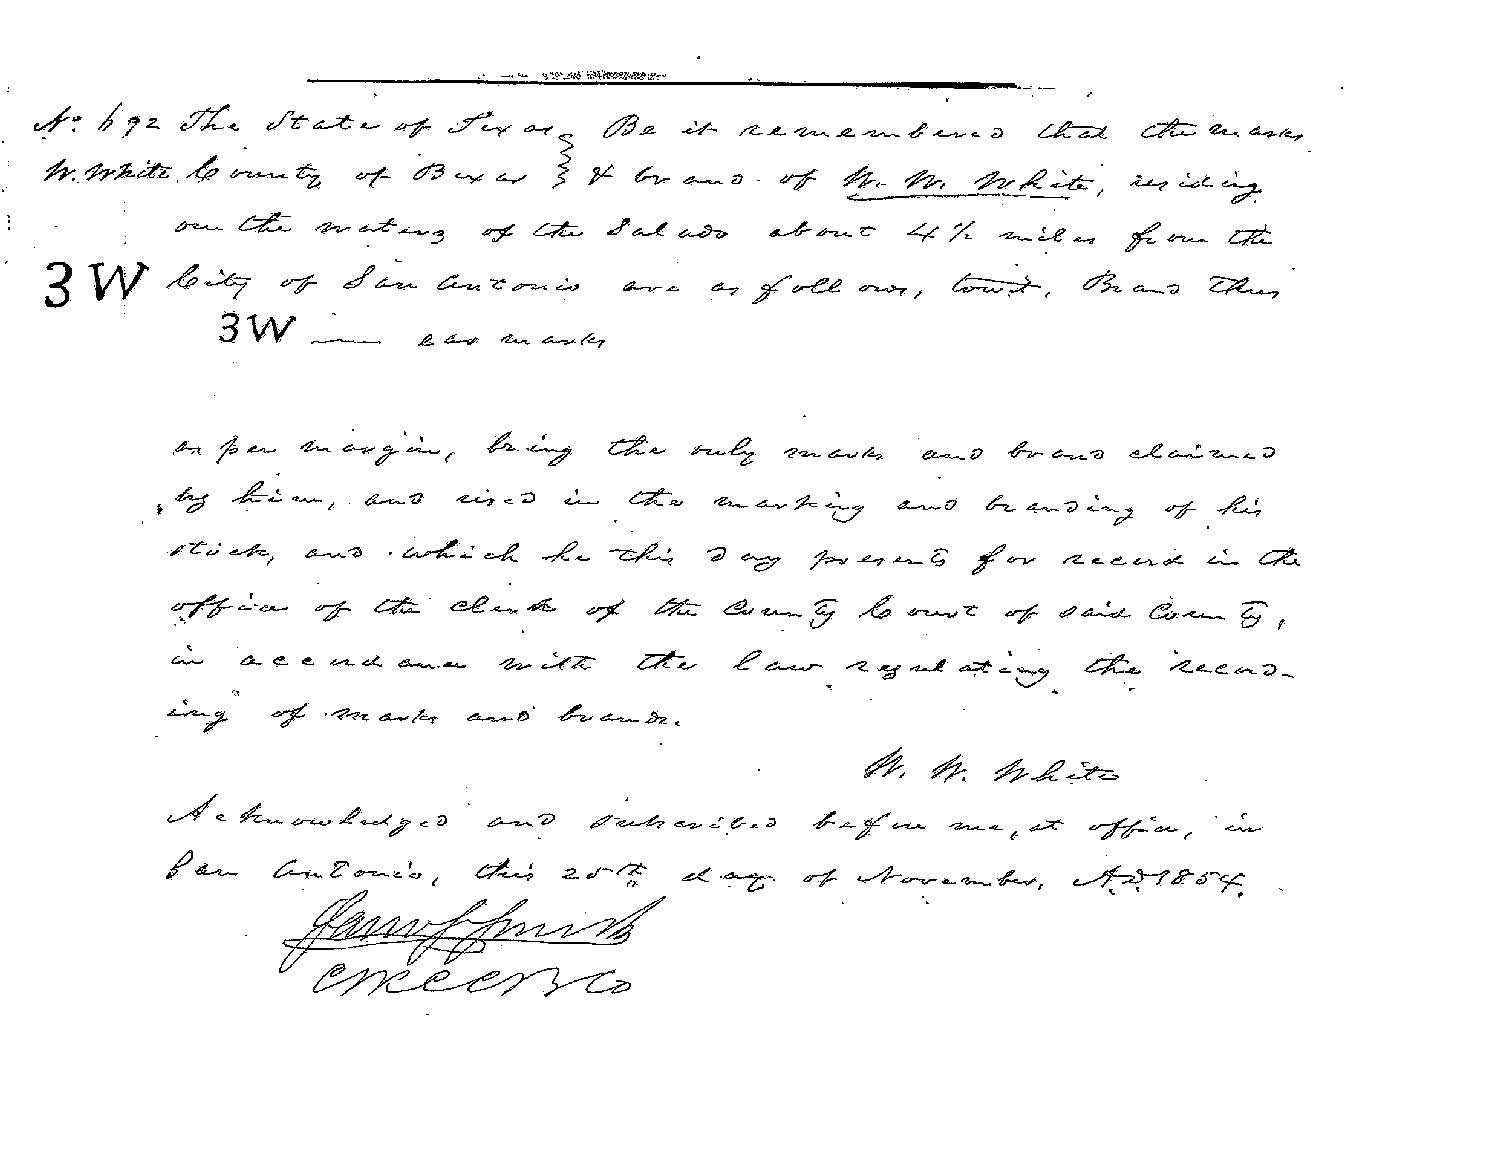 No. 692 The State of Texas } Be it remembered that the marks
W. White County of Bexar } & brand of W. W. White, residing
on the waters of the Salado about 4½ miles from the
3W City of San Antonio are as follows, towit, Brand thus
3W — ear marks
as per margin, being the only marks and brand claimed
by him, and used in the marking and branding of his
stock, and which he this day presents for record in the
office of the clerk of the County Court of said County,
in accordance with the law regulating the record-
ing of marks and brands.
W. W. White
Acknowledged and subscribed before me, at office, in
San Antonio, this 25th day of November, A.D. 1854.
Sam S. Smith